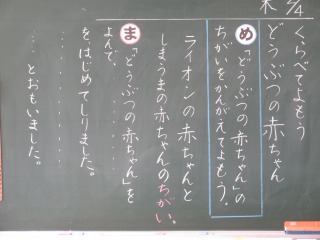 木 2/4
くらべてよもう
どうぶつの赤ちゃん
め 「どうぶつの赤ちゃん」の
ちがいをかんがえてよもう。
ライオンの赤ちゃんと
しまうまの赤ちゃんのちがい。
ま 「どうぶつの赤ちゃん」を
よんで、・・・・・・・・
を、はじめてしりました。
・・・・・・・・
・・・とおもいました。